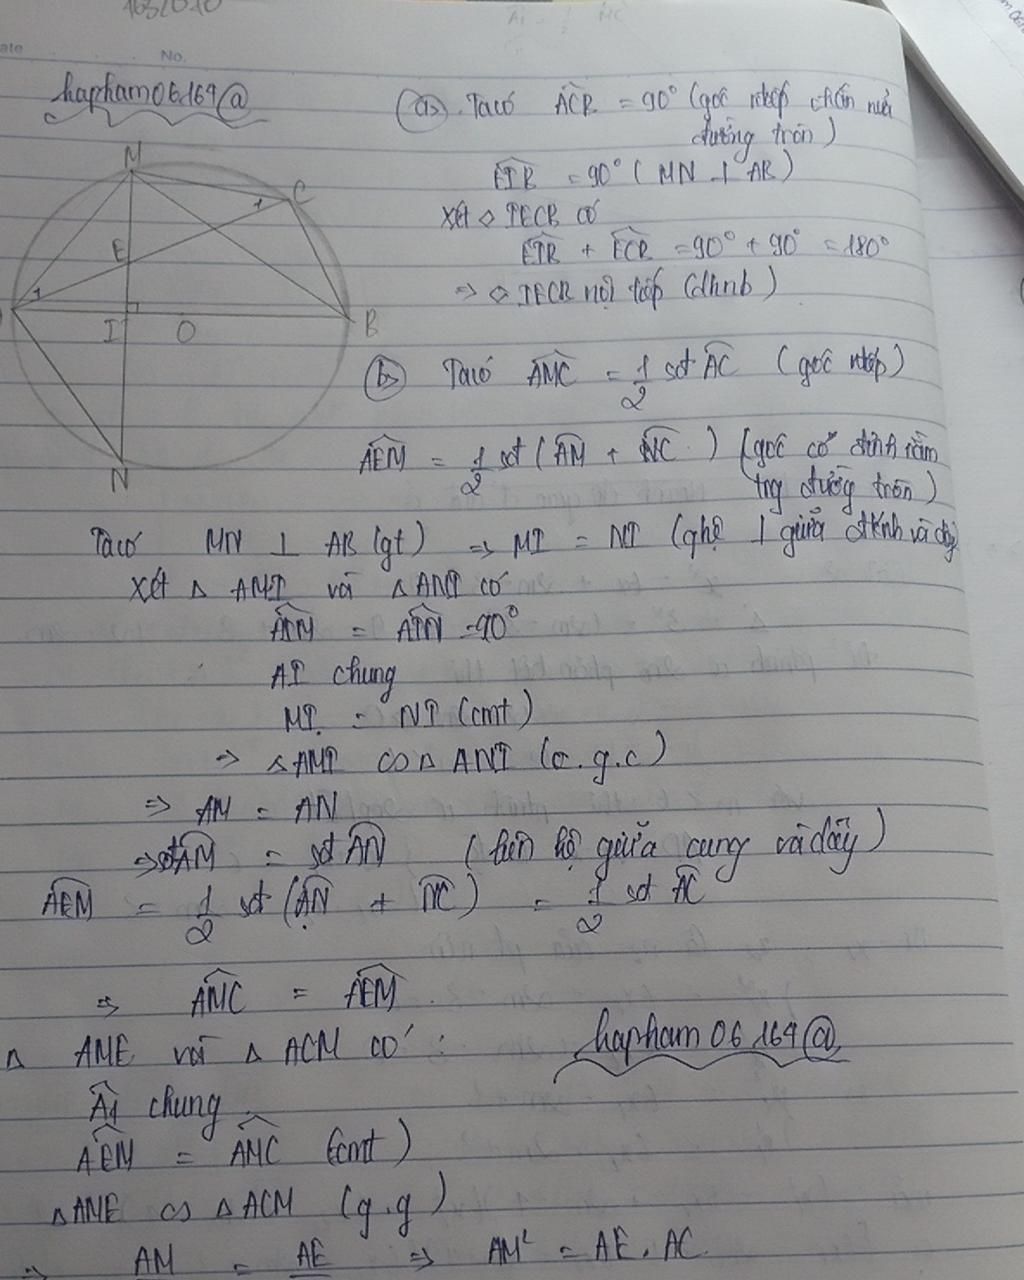 ate
No.
hapham06164@
M
C
1
E
1
I
O
B
N
a, Ta có ACB = 90° (góc ntiếp chắn nửa
đường tròn)
EIB = 90° ( MN ⊥ AB)
Xét ◇ IECB có
EIB + ECB = 90° + 90° = 180°
=> ◇ IECB nội tiếp (dhnb)
b, Ta có AMC = 1/2 sđ AC (góc ntiếp)
AEM = 1/2 sđ ( AM + NC ) (góc có đỉnh nằm
trg đường tròn)
Ta có MN ⊥ AB (gt) => MI = NI (qhệ ⊥ giữa đkính và dây
Xét △ AMI và △ ANI có
AIM = AIN = 90°
AI chung
MI = NI (cmt)
=> △ AMI ∽ △ ANI (c.g.c)
=> AM = AN
=> sđ AM = sđ AN (liên hệ giữa cung và dây)
AEM = 1/2 sđ (AN + NC) = 1/2 sđ AC
=> AMC = AEM
△ AME và △ ACM có :
A1 chung
AEM = AMC (cmt)
△ AME ∽ △ ACM (g.g)
=> AM = AE => AM² = AE . AC
hapham 06 164@